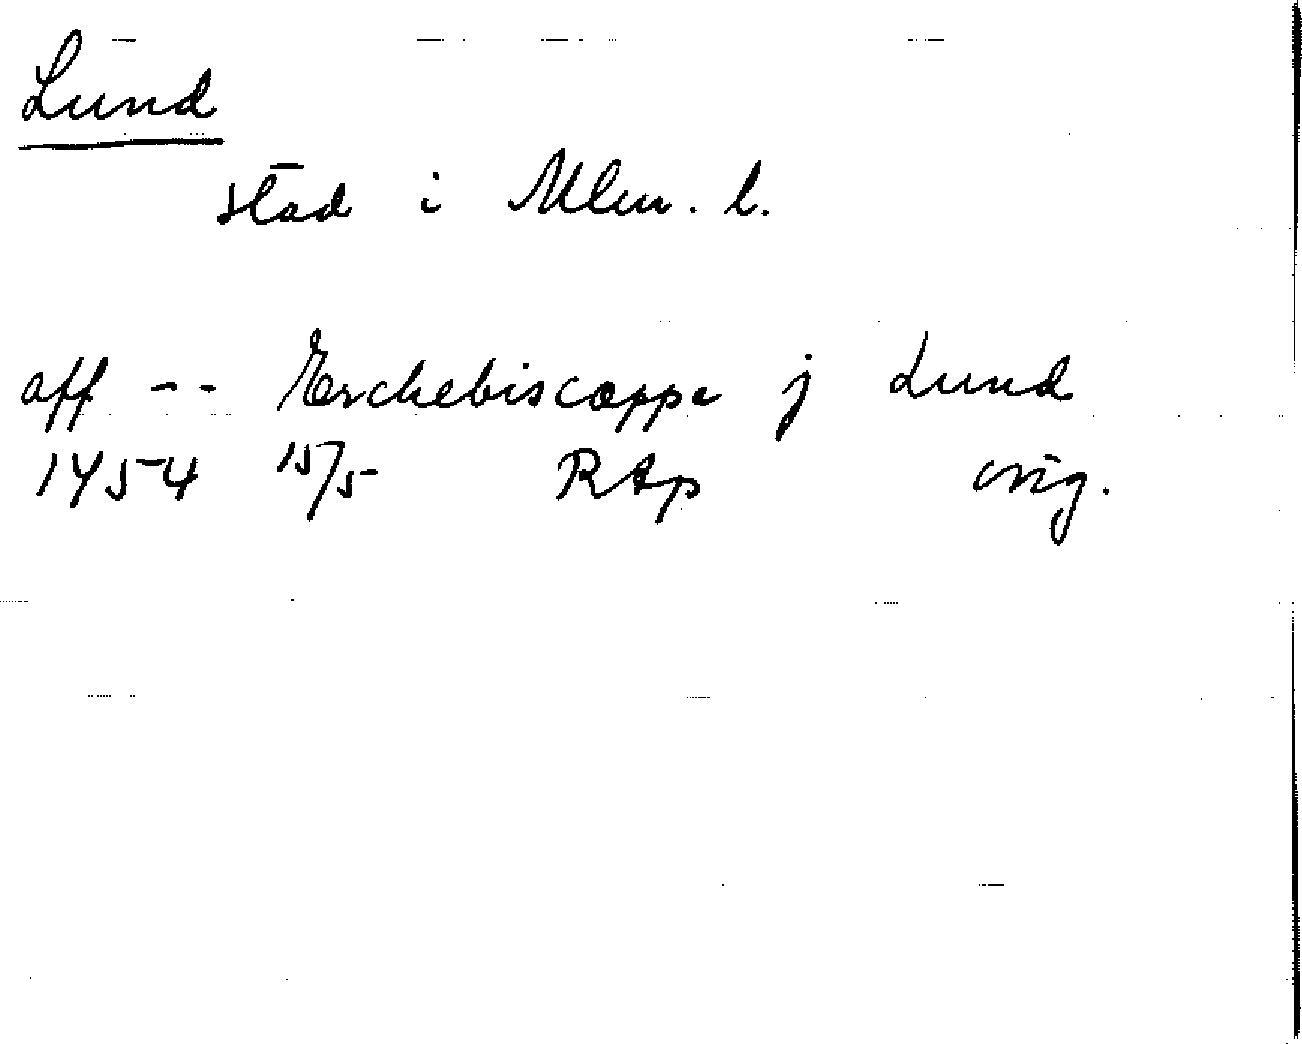 Lund
stad i Mlm. l.
aff -- Erchebiscoppe j Lund
1454 15/5 RAp orig.